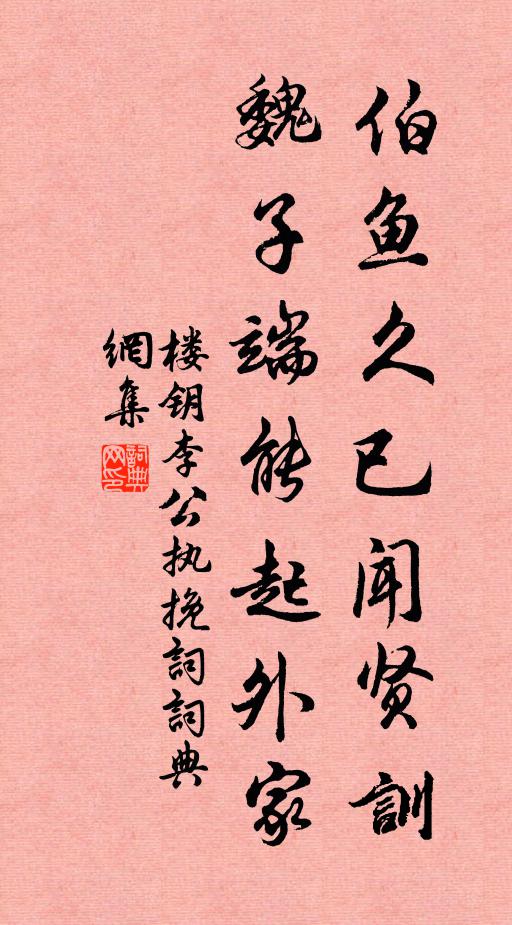 伯鱼久已闻贤訓
魏子端能起外家
楼钥李公执挽詞詞典
網集
詞典
网印